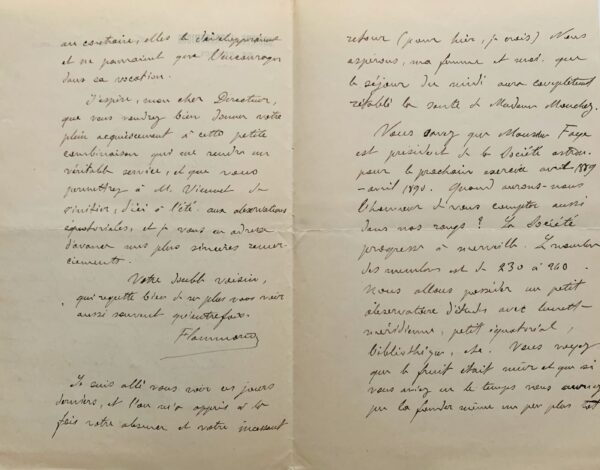 au contraire, elles le développeraient
et ne pourraient que l'encourager
dans sa vocation.
J'espère, mon cher Directeur,
que vous voudrez bien donner votre
plein acquiescement à cette petite
combinaison qui me rendra un
véritable service, et que vous
permettrez à M. de
s'initier, d'ici à l'été aux observations
équatoriales, et je vous en adresse
d'avance mes plus sincères remer-
ciements.
Votre double voisin,
qui regrette bien de ne plus vous voir
aussi souvent qu'autrefois.
Flammarion
Je suis allé vous voir ces jours
derniers, et l'on m'a appris à la
fois votre absence et votre incessant
retour (pour hier, je crois) Nous
espérons, ma femme et moi, que
le séjour du midi aura complètement
rétabli la santé de Madame Mouchez.
Vous savez que Monsieur Faye
est président de la Société astron.
pour le prochain exercice avril 1889
- avril 1890. Quand aurons-nous
l'honneur de vous compter aussi
dans nos rangs ? La Société
progresse à merveille. Le nombre
des membres est de 230 à 240.
Nous allons posséder un petit
observatoire d'études avec lunette
méridienne, petit équatorial,
bibliothèque, etc. Vous voyez
que le fruit était mûr et que si
vous aviez eu le temps vous auriez
pu la fonder même un peu plus tôt